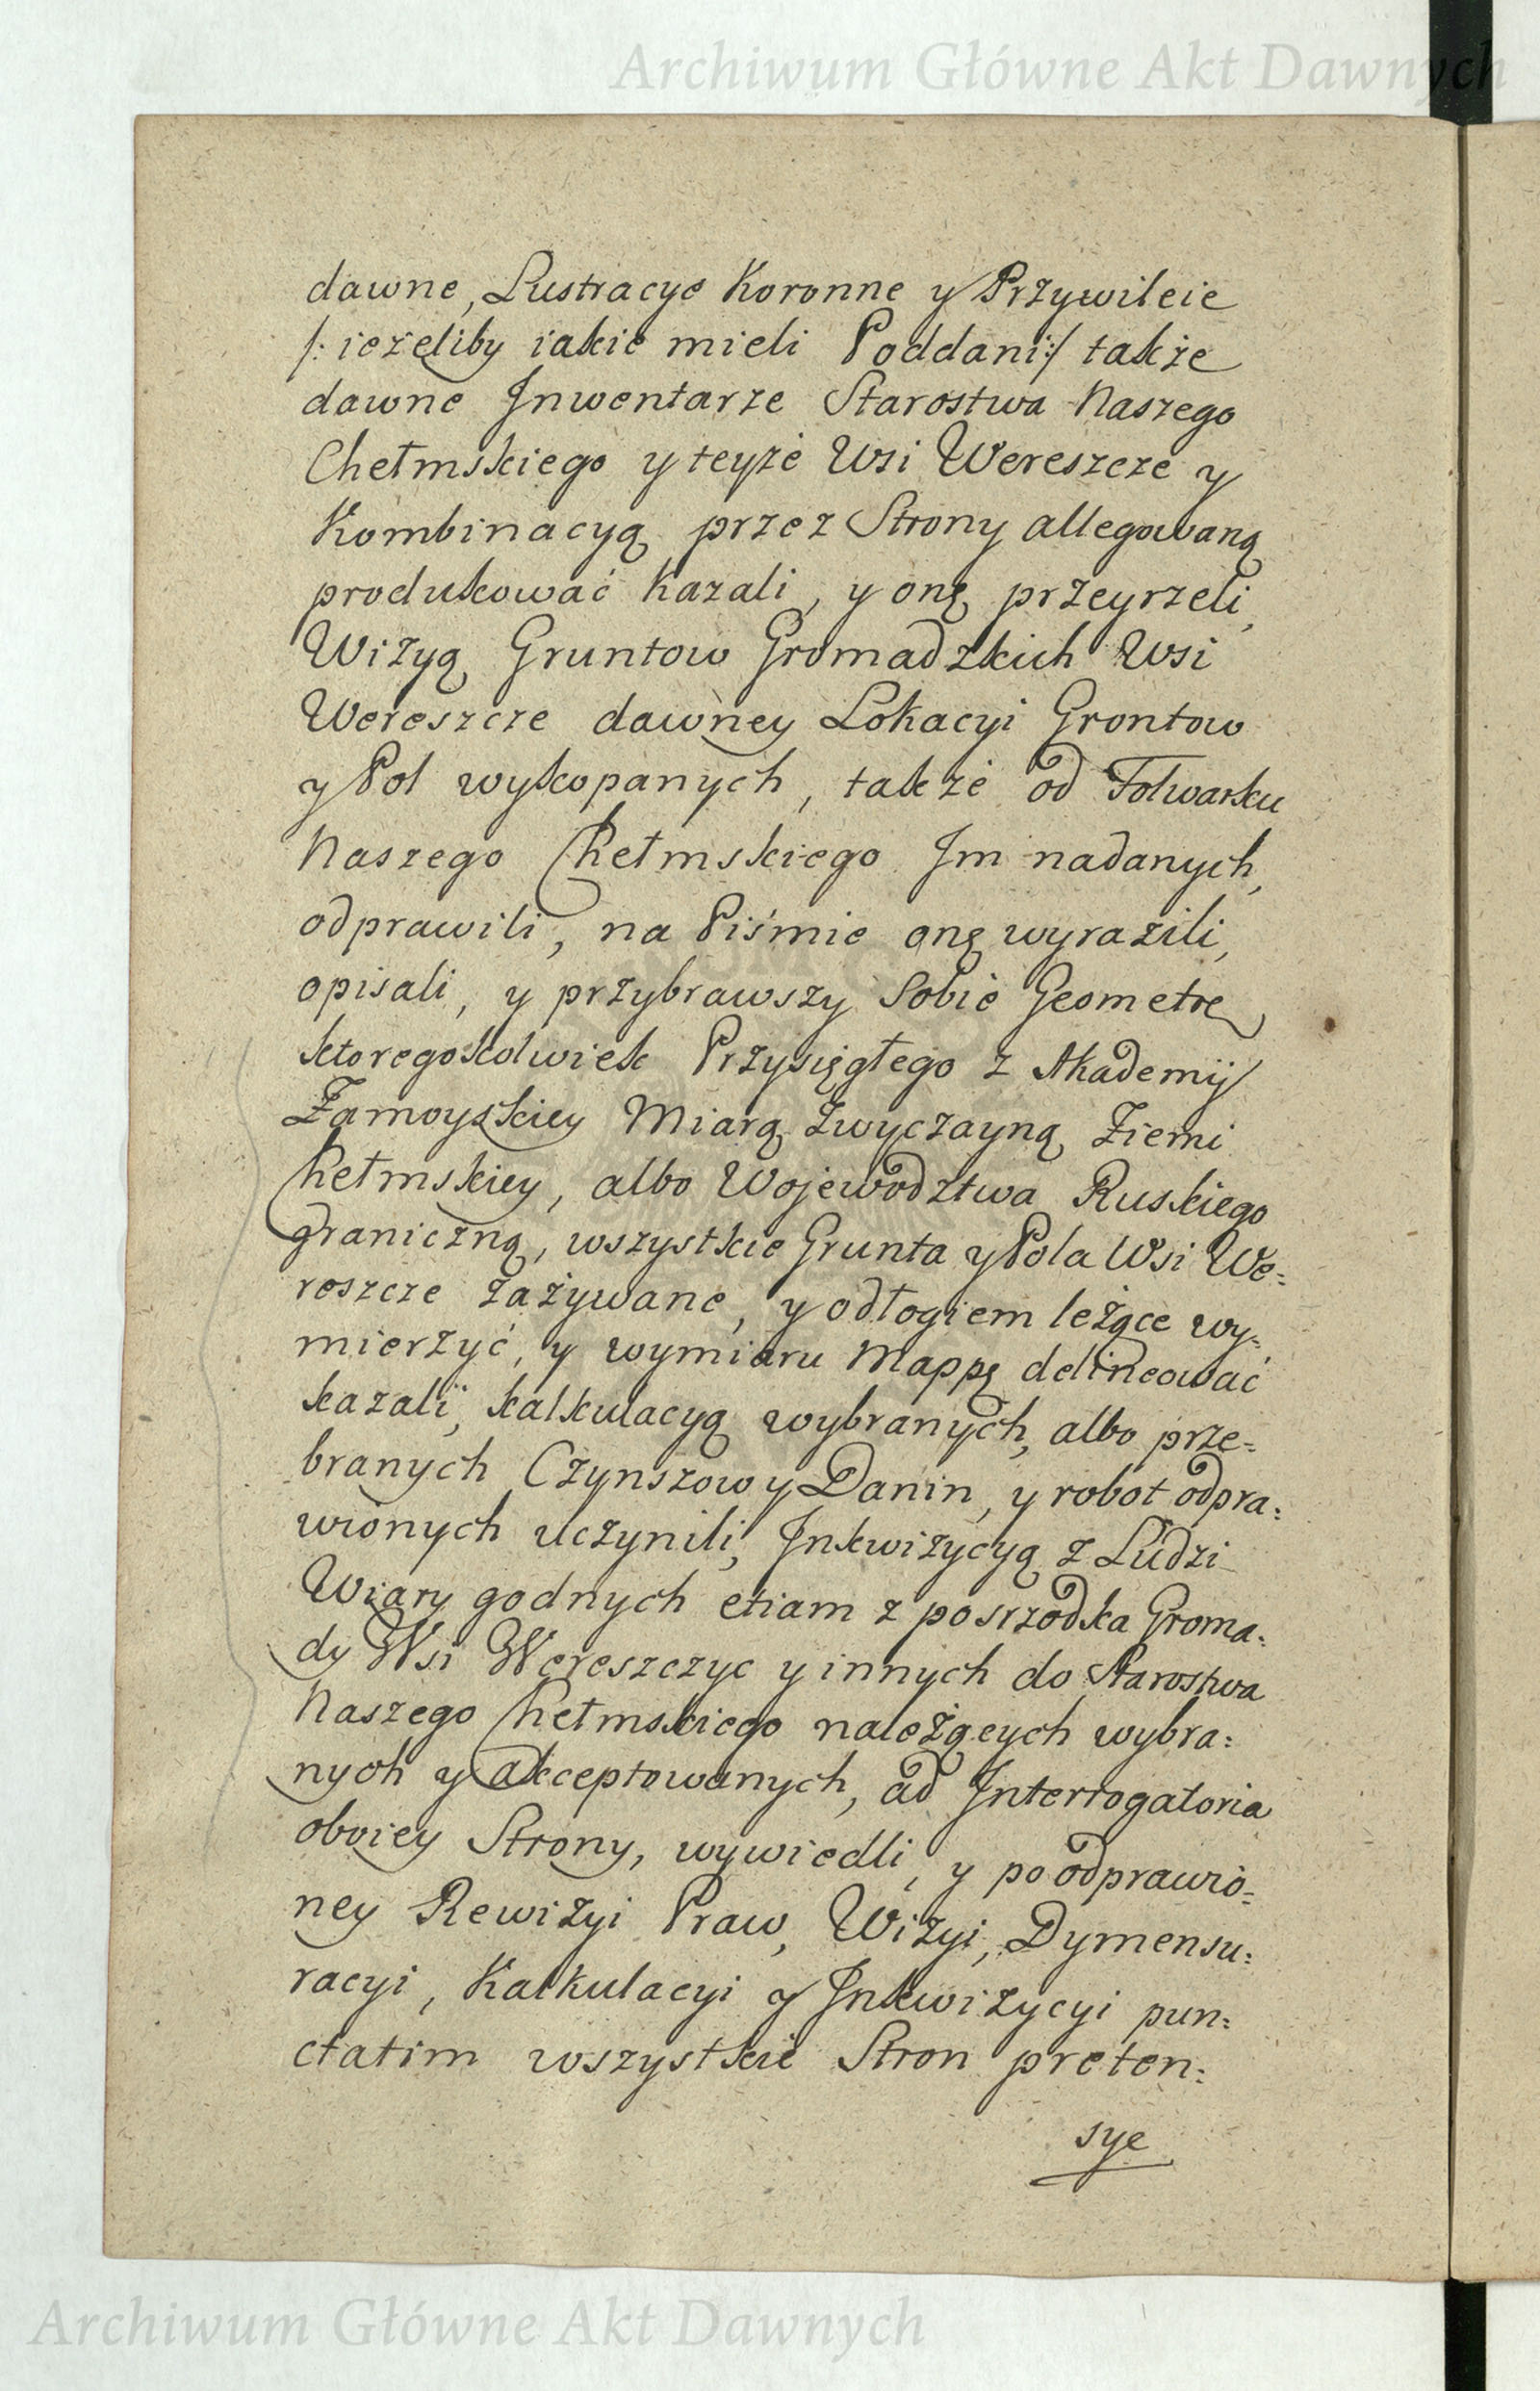 Archiwum Główne Akt Dawnych
dawne, Lustracye Koronne y Przywileie
/: ieżeliby iakie mieli Poddani :/ także
dawne Jnwentarze Starostwa Naszego
Chełmskiego y teyże Wsi Wereszcze y
Kombinacyą przez Strony allegowaną
produkować kazali, y onę przeyrzeli,
Wizyą Gruntow Gromadzkich Wsi
Wereszcze dawney Lokacyi Grontow
y Pol wykopanych, także od Folwarku
Naszego Chełmskiego Jm nadanych,
odprawili, na Piśmie onę wyrazili,
opisali, y przybrawszy Sobie Geometrę
ktoregokolwiek Przysięgłego z Akademij
Zamoyskiey Miarą Zwyczayną Ziemi
Chełmskiey, albo Wojewodztwa Ruskiego
graniczną, wszystkie Grunta y Pola Wsi We=
reszcze zażywane, y odłogiem leżące wy=
mierzyć, y wymiaru Mappę delineować
kazali, kalkulacyą wybranych, albo prze=
branych Czynszow y Danin, y robot odpra=
wionych uczynili, Jnkwizycyą z Ludzi
Wiary godnych etiam z posrzodka Groma=
dy Wsi Wereszczyc y innych do Starostwa
Naszego Chełmskiego należących wybra=
nych y akceptowanych, ad Jnterrogatoria
oboiey Strony, wywiedli, y po odprawio=
ney Rewizyi Praw, Wizyi, Dymensu=
racyi, Kalkulacyi y Jnkwizycyi pun=
ctatim wszystkie Stron preten=
sye
Archiwum Główne Akt Dawnych